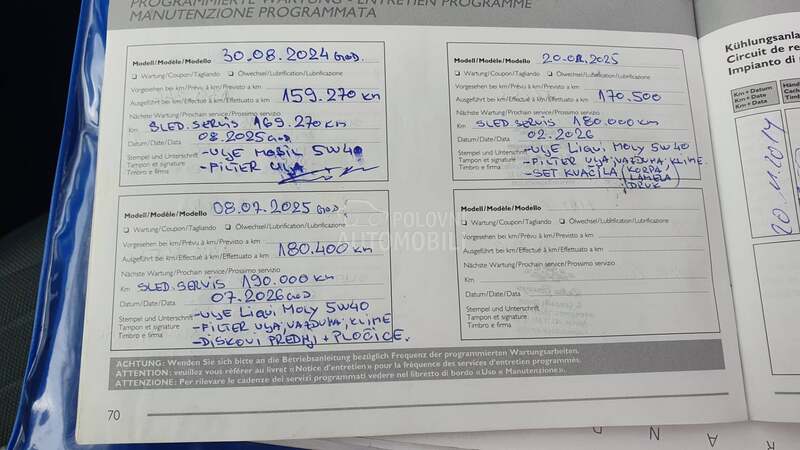 PROGRAMMIERTE WARTUNG - ENTRETIEN PROGRAMME
MANUTENZIONE PROGRAMMATA
Modell/Modèle/Modello 30.08.2024 GOD.
❑ Wartung/Coupon/Tagliando ❑ Ölwechsel/Lubrification/Lubrificazione
Vorgesehen bei km/Prévu à km/Previsto a km
Ausgeführt bei km/Effectué à km/Effettuato a km 159.270 km
Nächste Wartung/Prochain service/Prossimo servizio
Km SLED. SERVIS 169.270 km
Datum/Date/Data 08.2025 GOD
Stempel und Unterschrift
Tampon et signature
Timbro e firma
- ULJE MOBIL 5W40
- FILTER ULJA
Modell/Modèle/Modello 20.02.2025
❑ Wartung/Coupon/Tagliando ❑ Ölwechsel/Lubrification/Lubrificazione
Vorgesehen bei km/Prévu à km/Previsto a km
Ausgeführt bei km/Effectué à km/Effettuato a km 170.500
Nächste Wartung/Prochain service/Prossimo servizio
Km SLED. SERVIS 180.000 km
Datum/Date/Data 02.2026
Stempel und Unterschrift
Tampon et signature
Timbro e firma
- ULJE LIQUI MOLY 5W40
- FILTER ULJA, VAZDUHA, KLIME.
- SET KVAČILA (KORPA,
LAMELA
DRUK
Modell/Modèle/Modello 08.07.2025 GOD.
❑ Wartung/Coupon/Tagliando ❑ Ölwechsel/Lubrification/Lubrificazione
Vorgesehen bei km/Prévu à km/Previsto a km
Ausgeführt bei km/Effectué à km/Effettuato a km 180.400 km
Nächste Wartung/Prochain service/Prossimo servizio
Km SLED. SERVIS 190.000 km
Datum/Date/Data 07.2026 GOD
Stempel und Unterschrift
Tampon et signature
Timbro e firma
- ULJE LIQUI MOLY 5W40
- FILTER ULJA, VAZDUHA, KLIME
- DISKOVI PREDNJI + PLOČICE.
Modell/Modèle/Modello
❑ Wartung/Coupon/Tagliando ❑ Ölwechsel/Lubrification/Lubrificazione
Vorgesehen bei km/Prévu à km/Previsto a km
Ausgeführt bei km/Effectué à km/Effettuato a km
Nächste Wartung/Prochain service/Prossimo servizio
Km
Datum/Date/Data
Stempel und Unterschrift
Tampon et signature
Timbro e firma
POLOVNI
AUTOMOBILI
ACHTUNG: Wenden Sie sich bitte an die Betriebsanleitung bezüglich Frequenz der programmierten Wartungsarbeiten.
ATTENTION: veuillez vous référer au livret «Notice d'entretien» pour la fréquence des services d'entretien programmés.
ATTENZIONE: Per rilevare le cadenze dei servizi programmati vedere nel libretto di bordo «Uso e Manutenzione».
70
Kühlungsanla
Circuit de re
Impianto di
Km + Datum
Km + Date
Km + Data
20.11.2017